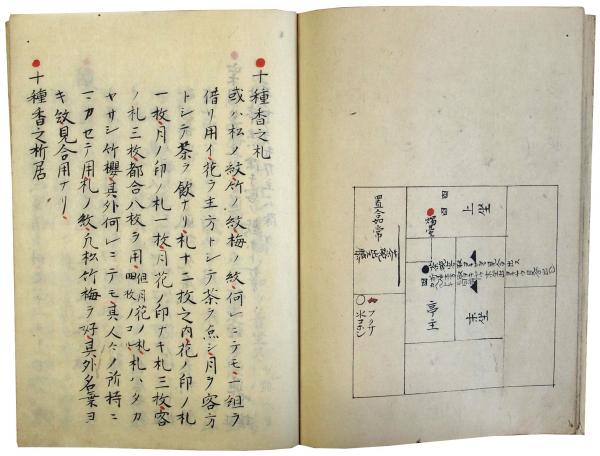 上坐
末坐
亭主
置合常
フクサ
水コボシ
十種香之札
或ハ松ノ紋竹ノ紋梅ノ紋何レニテモ一組ヲ
借リ用イ花ヲ主方トシテ茶ヲ点シ月ヲ客方
トシテ茶ヲ飲ナリ札十二枚之内花ノ印ノ札
一枚月ノ印ノ札一枚月花ノ印ナキ札三枚客
ノ札三枚都合八枚ヲ用但月花ノ札四枚ノコト札ハタカ
ヤサシ竹櫻其外何レニテモ其人々ノ所持ニ
マカセテ用札ノ紋尤松竹梅ヲ好其外名葉ヨ
キ紋見合用ナリ
十種香之折居